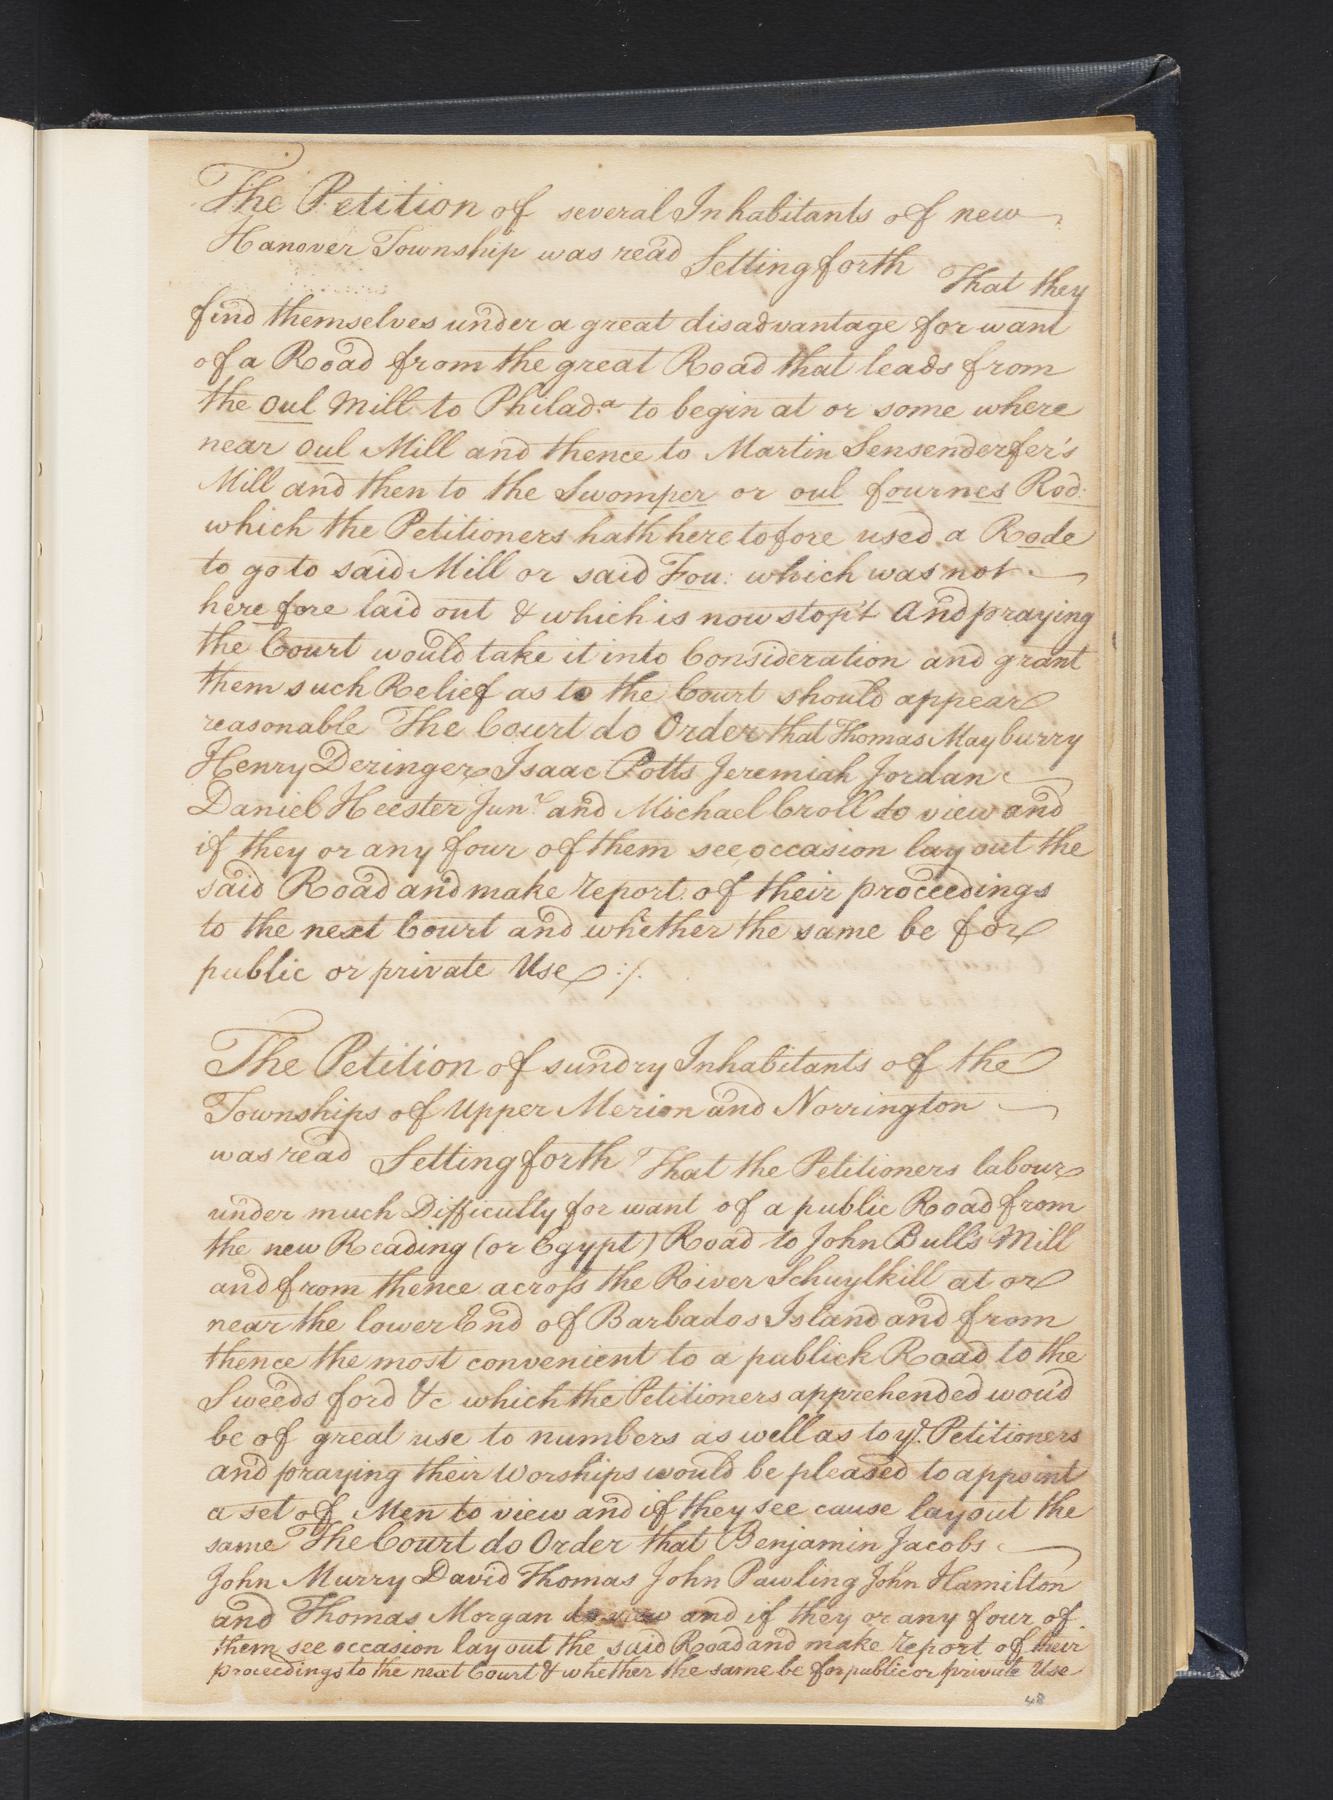 The Petition of several Inhabitants of new
Hanover Township was read Setting forth That they
find themselves under a great disadvantage for want
of a Road from the great Road that leads from
the oul Mill to Philad.a to begin at or some where
near oul Mill and thence to Martin Sensenderfer's
Mill and then to the Swomper or oul fournes Rod:
which the Petitioners hath heretofore used a Rode
to go to said Mill or said Fou: which was not
here fore laid out & which is now stop't And praying
the Court would take it into Consideration and grant
them such Relief as to the Court should appear
reasonable The Court do Order that Thomas Mayburry
Henry Deringer Isaac Potts Jeremiah Jordan
Daniel Heester Junr and Michael Croll do view and
if they or any four of them see occasion lay out the
said Road and make report of their proceedings
to the next Court and whether the same be for
public or private Use :/.
The Petition of sundry Inhabitants of the
Townships of Upper Merion and Norrington
was read Setting forth That the Petitioners labour
under much Difficulty for want of a public Road from
the new Reading (or Egypt) Road to John Bull's Mill
and from thence across the River Schuylkill at or
near the lower End of Barbados Island and from
thence the most convenient to a publick Road to the
Sweeds ford &c which the Petitioners apprehended wou'd
be of great use to numbers as well as to ye. Petitioners
and praying their Worships would be pleased to appoint
a set of Men to view and if they see cause lay out the
same The Court do Order that Benjamin Jacobs
John Murry David Thomas John Pawling John Hamilton
and Thomas Morgan do view and if they or any four of
them see occasion lay out the said Road and make report of their
proceedings to the next Court & whether the same be for public or private Use
48